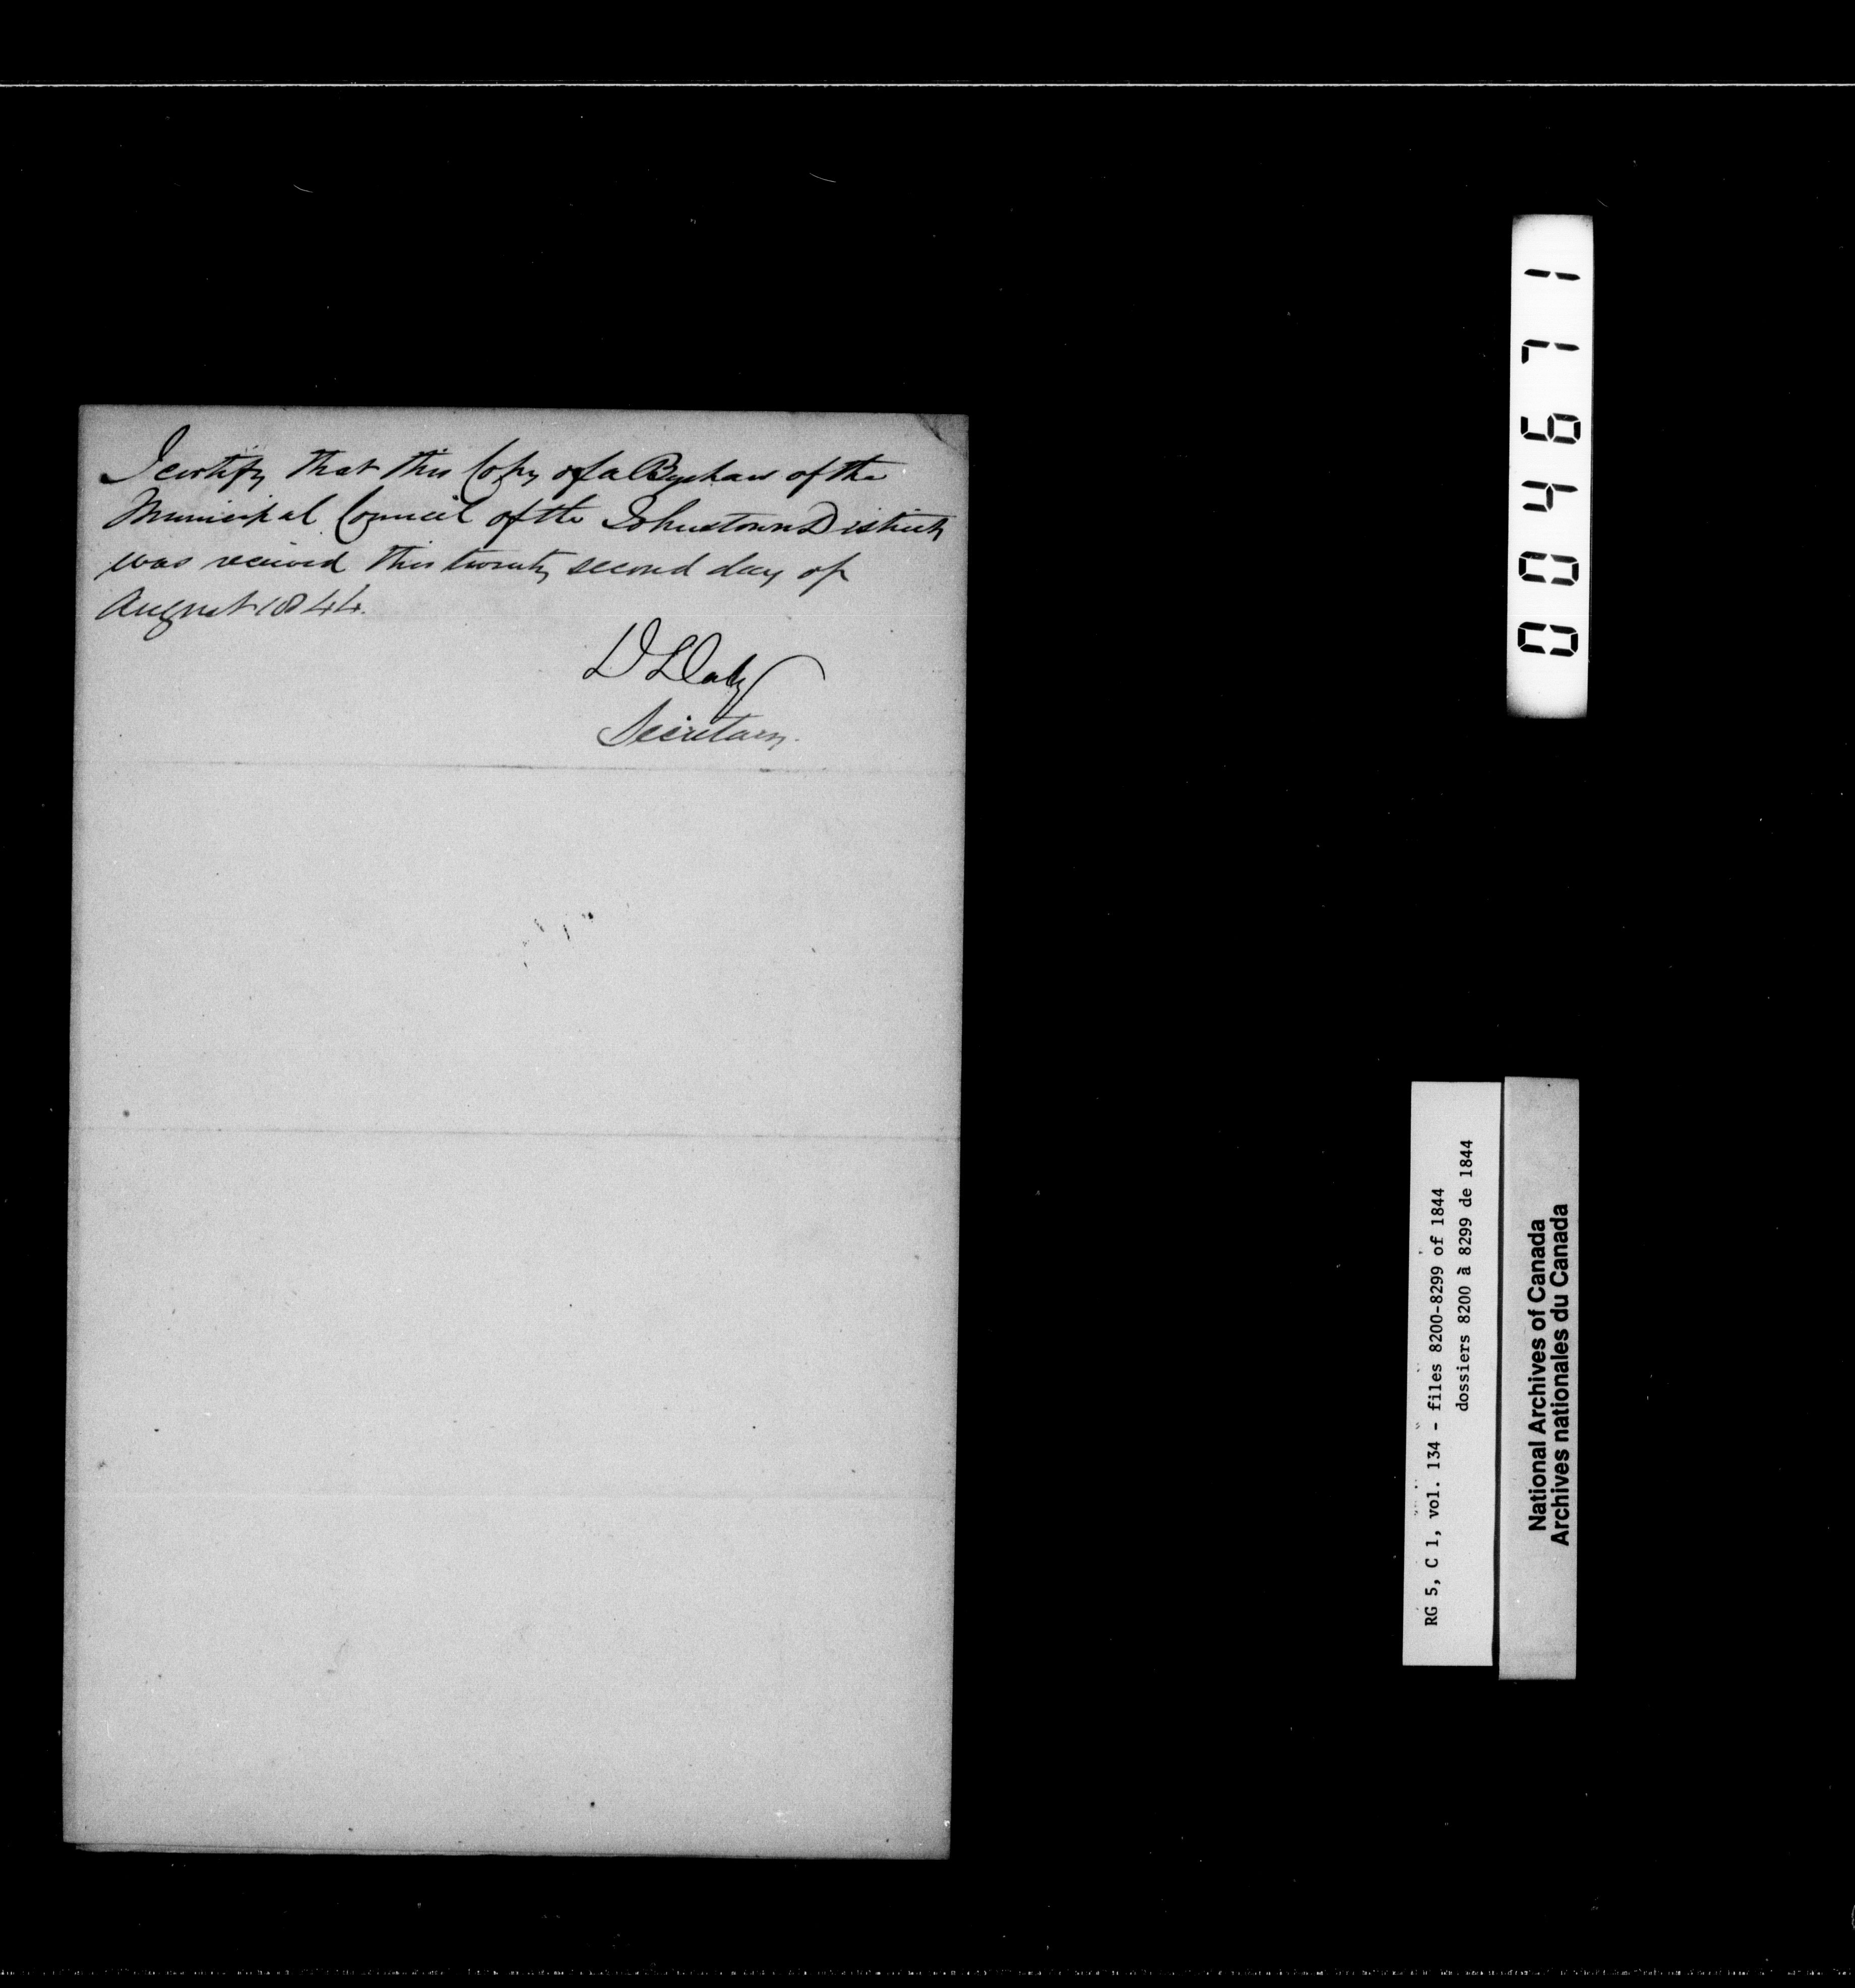 I certify that this Copy of a Bye Law of the
Municipal Council of the Johnstown District
was received this twenty second day of
August 1844.
D Daly
Secretary.
004671
RG 5, C 1, vol. 134 - files 8200-8299 of 1844
dossiers 8200 à 8299 de 1844
National Archives of Canada
Archives nationales du Canada